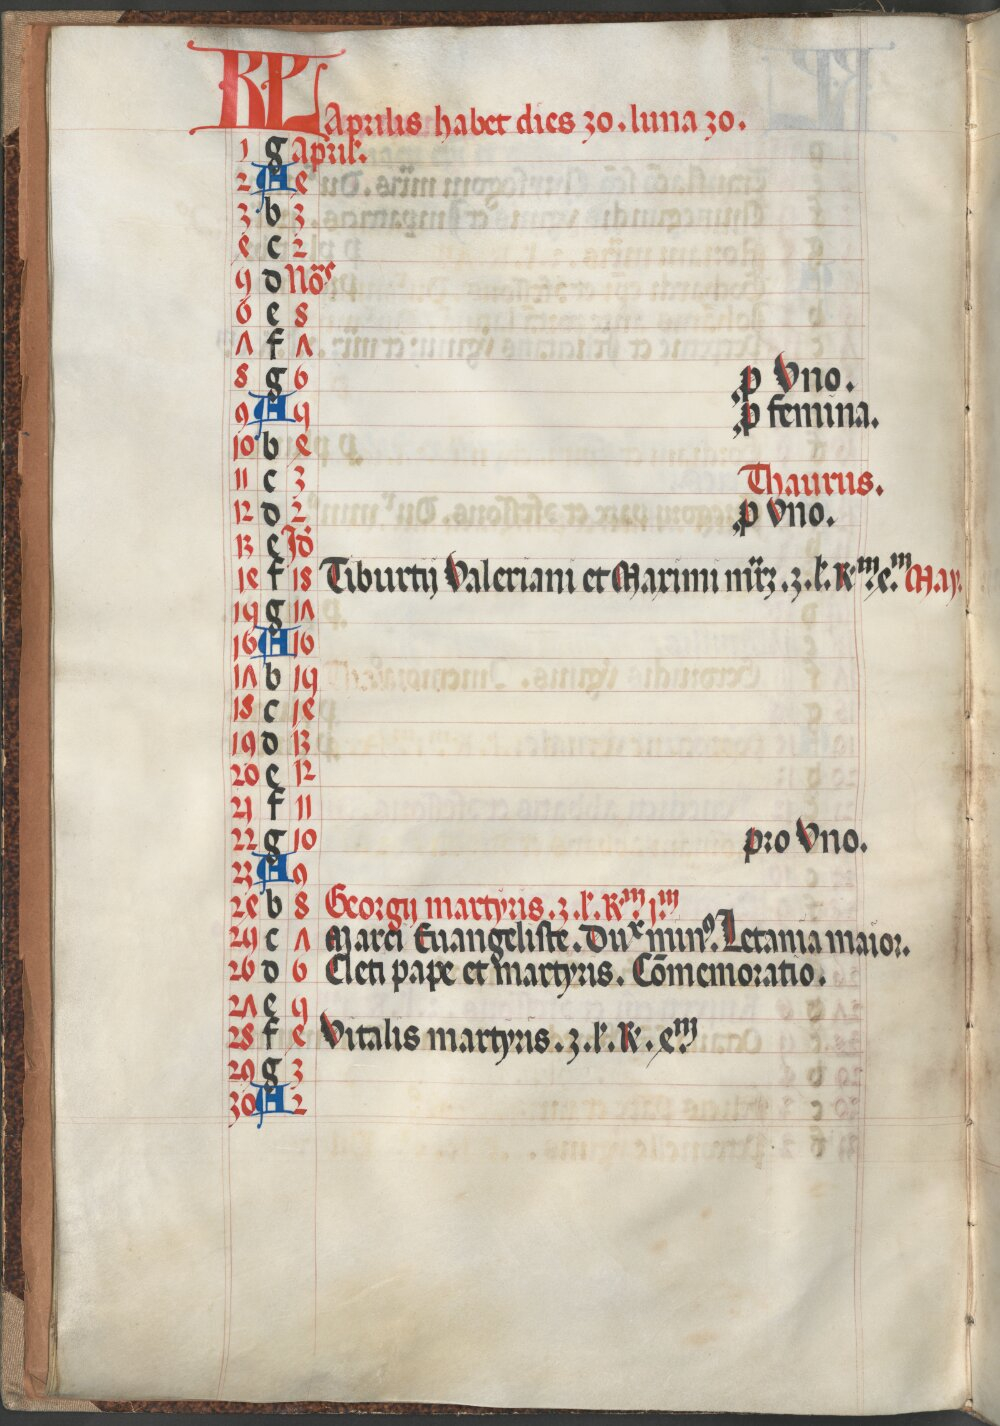 KL Aprilis habet dies 30. luna 30.
1 g April.
2 A 4
3 b 3
4 c 2
5 d Nōs
6 e 8
7 f 7
8 g 6 p Vno.
9 A 5 p femina.
10 b 4
11 c 3 Thaurus.
12 d 2 p Vno.
13 e Id
14 f 18 Tiburtij Valeriani et Maximi mr̄z. 3. l. K m. c. m May.
15 g 17
16 A 16
17 b 15
18 c 14
19 d 13
20 e 12
21 f 11
22 g 10 pro Vno.
23 A 9
24 b 8 Georgij martyris. 3. l. K m. j. m
25 c 7 Marci Euangeliste. Du x min9. Letania maior.
26 d 6 Cleti pape et martyris. Cōmemoratio.
27 e 5
28 f 4 Vitalis martyris. 3. l. K. c. m
29 g 3
30 A 2